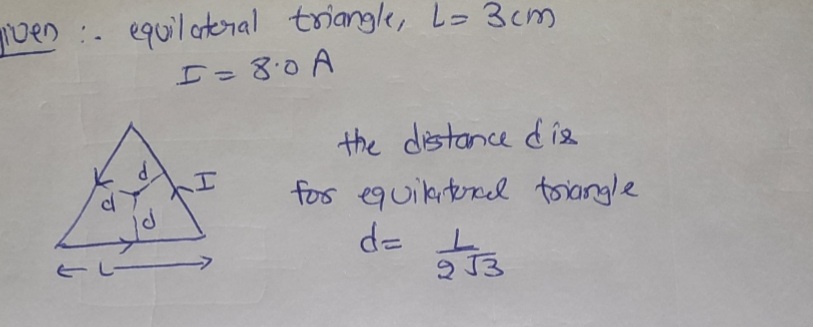 given :- equilateral triangle, L = 3 cm
I = 8.0 A
the distance d is
for equilateral triangle
d = L / 2√3
d
d
d
I
L